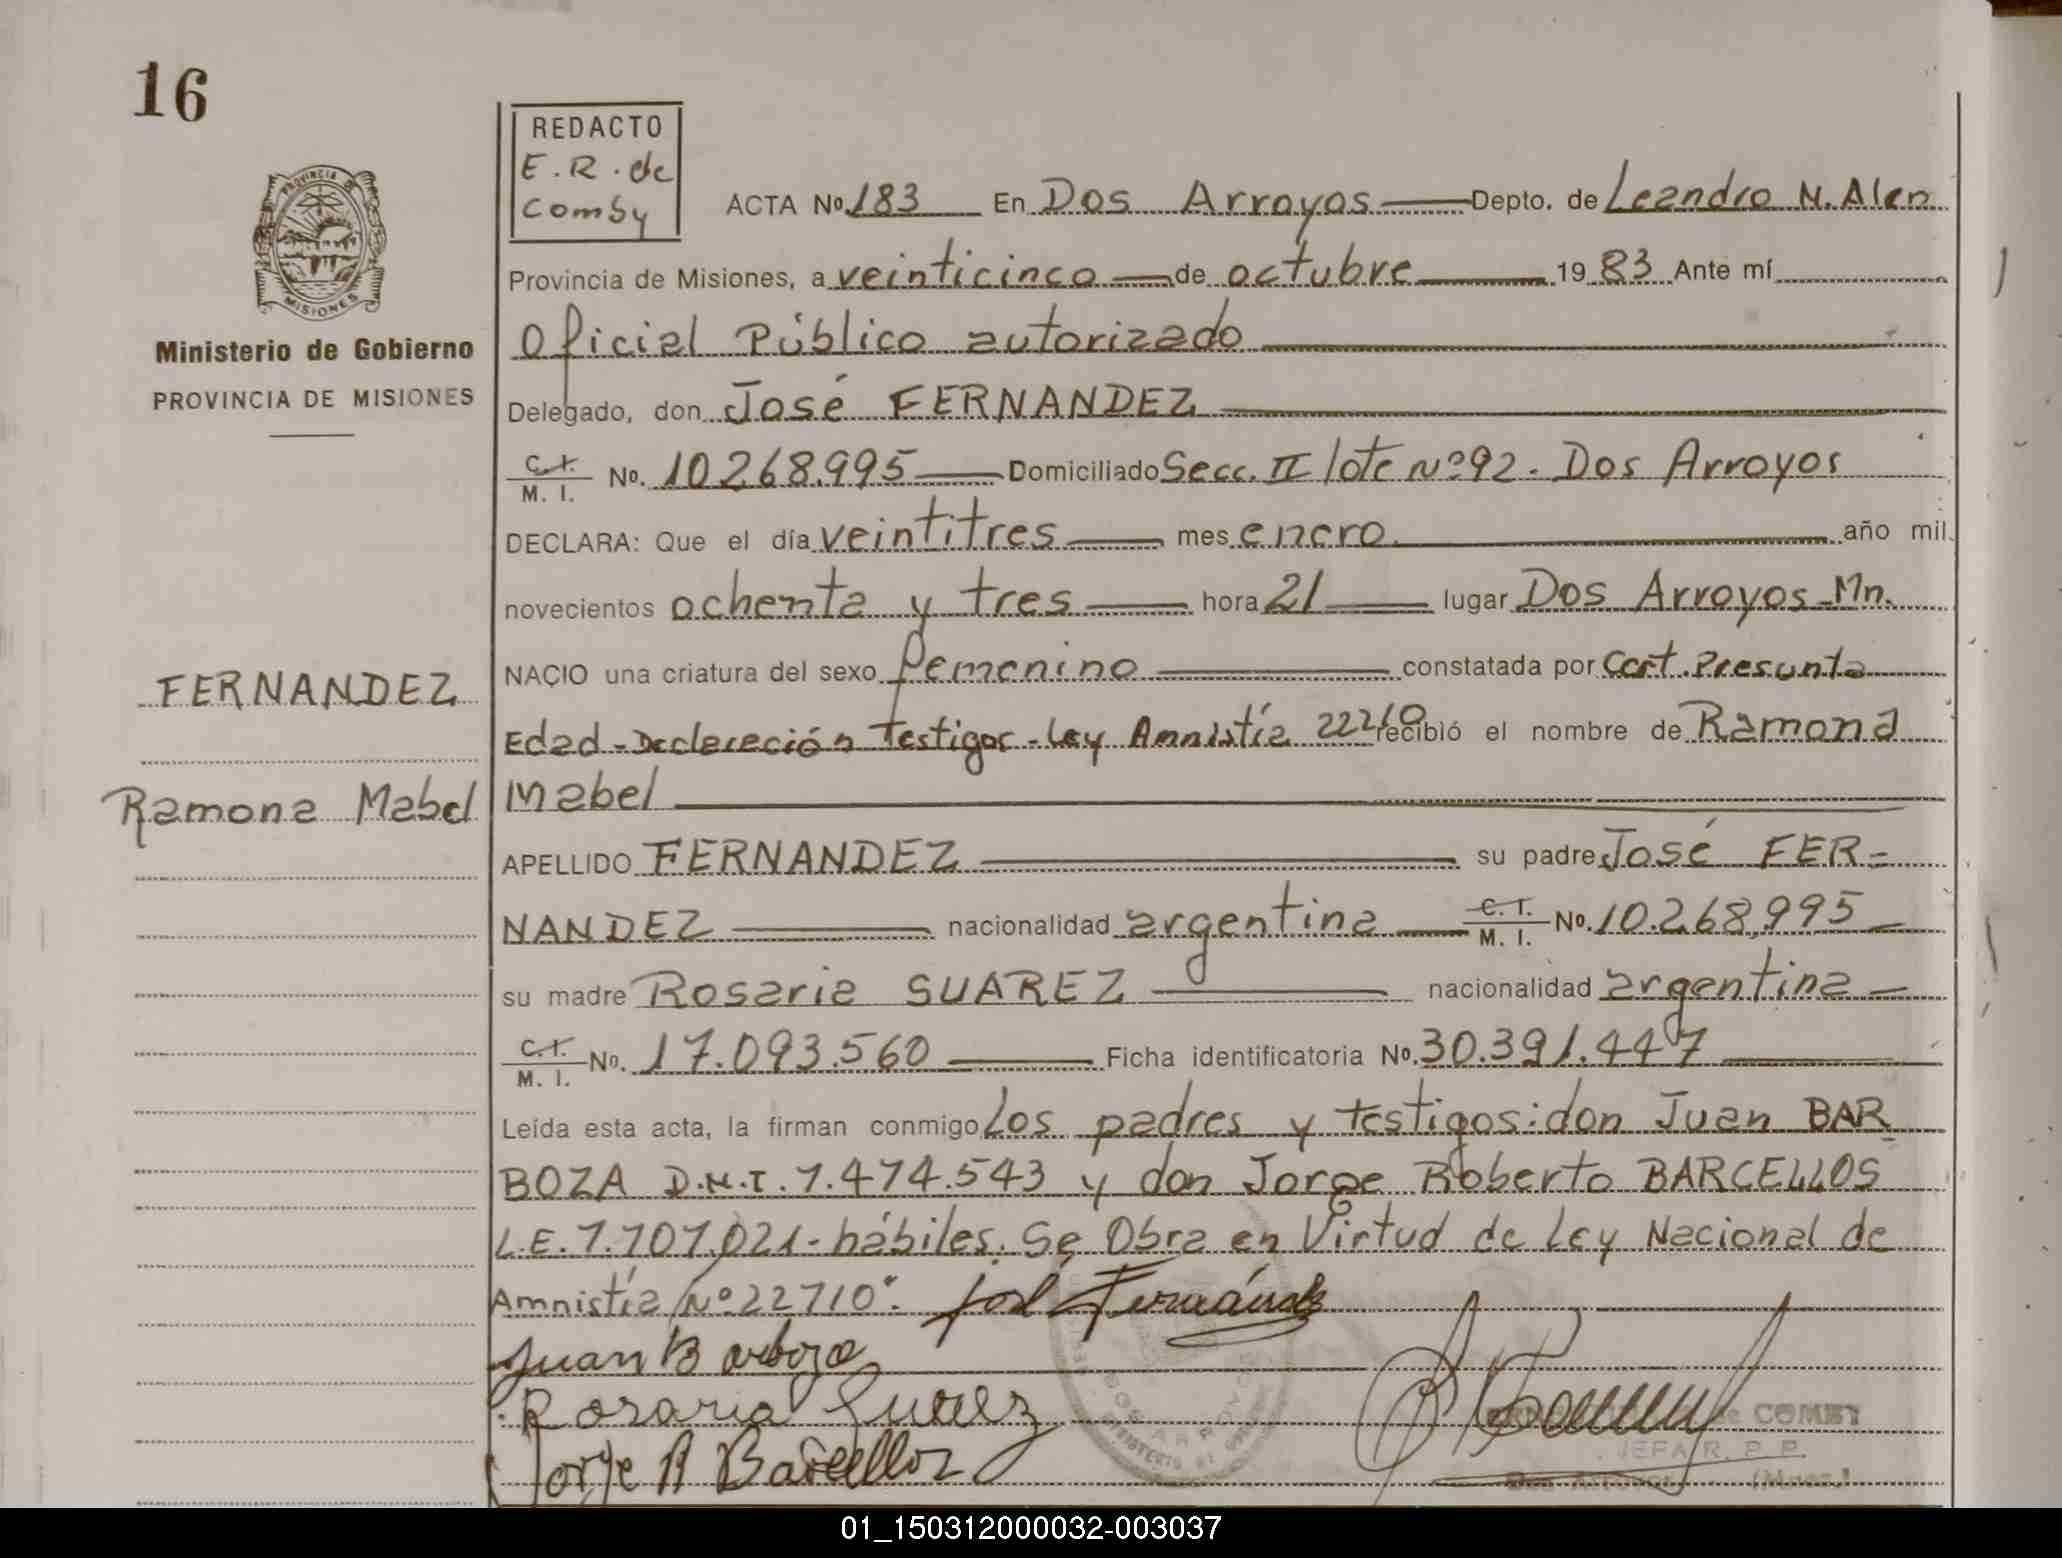 16
REDACTO
E. R. de
Comby
PROVINCIA DE
MISIONES
Ministerio de Gobierno
PROVINCIA DE MISIONES
ACTA No. 183 En Dos Arroyos Depto. de Leandro N. Alen
Provincia de Misiones, a veinticinco de octubre 19 83 Ante mí
Oficial Público autorizado
Delegado, don José FERNANDEZ
C.I. M. I. No. 10.268.995 Domiciliado Secc. II lote Nº 92. Dos Arroyos
DECLARA: Que el día veintitres mes enero año mil
novecientos ochenta y tres hora 21 lugar Dos Arroyos-Mn.
FERNANDEZ
NACIO una criatura del sexo femenino constatada por Cert. Presunta
Edad - Declaración Testigos - Ley Amnistía 22710 recibió el nombre de Ramona
Ramona Mabel
Mabel
APELLIDO FERNANDEZ su padre José FER-
NANDEZ nacionalidad argentina C.I. M. I. No. 10.268.995
su madre Rosaria SUAREZ nacionalidad argentina
C.I. M. I. No. 17.093.560 Ficha identificatoria No. 30.391.447
Leída esta acta, la firman conmigo Los padres y testigos: don Juan BAR
BOZA D.N.I. 7.474.543 y don Jorge Roberto BARCELLOS
L.E. 7.707.021 - hábiles. Se Obra en Virtud de Ley Nacional de
Amnistía Nº 22710".
José Fernández
Juan Barboza
Rosaria Suarez
Jorge R Barcellos
DOS ARROYOS
de COMBY
JEFA R. P. P.
Dos Arroyos (Mnes.)
01_150312000032-003037